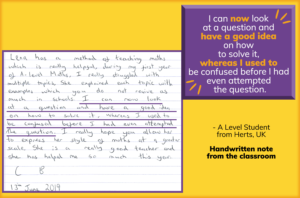 Lena has a method of teaching maths
which is really helpful, during my first year
of A-level Maths, I really struggled with
multiple topics. She explained each topic with
examples which you do not receive as
much in schools. I can now look
at a question and have a good idea
on how to solve it, whereas I used to
be confused before I had even attempted
the question. I really hope you allow her
to express her style of maths at a grander
scale. She is a really good teacher and
she has helped me so much this year.
13th June 2019
I can now look
at a question and
have a good idea
on how
to solve it,
whereas I used to
be confused before I had
even attempted
the question.
- A Level Student
from Herts, UK
Handwritten note
from the classroom